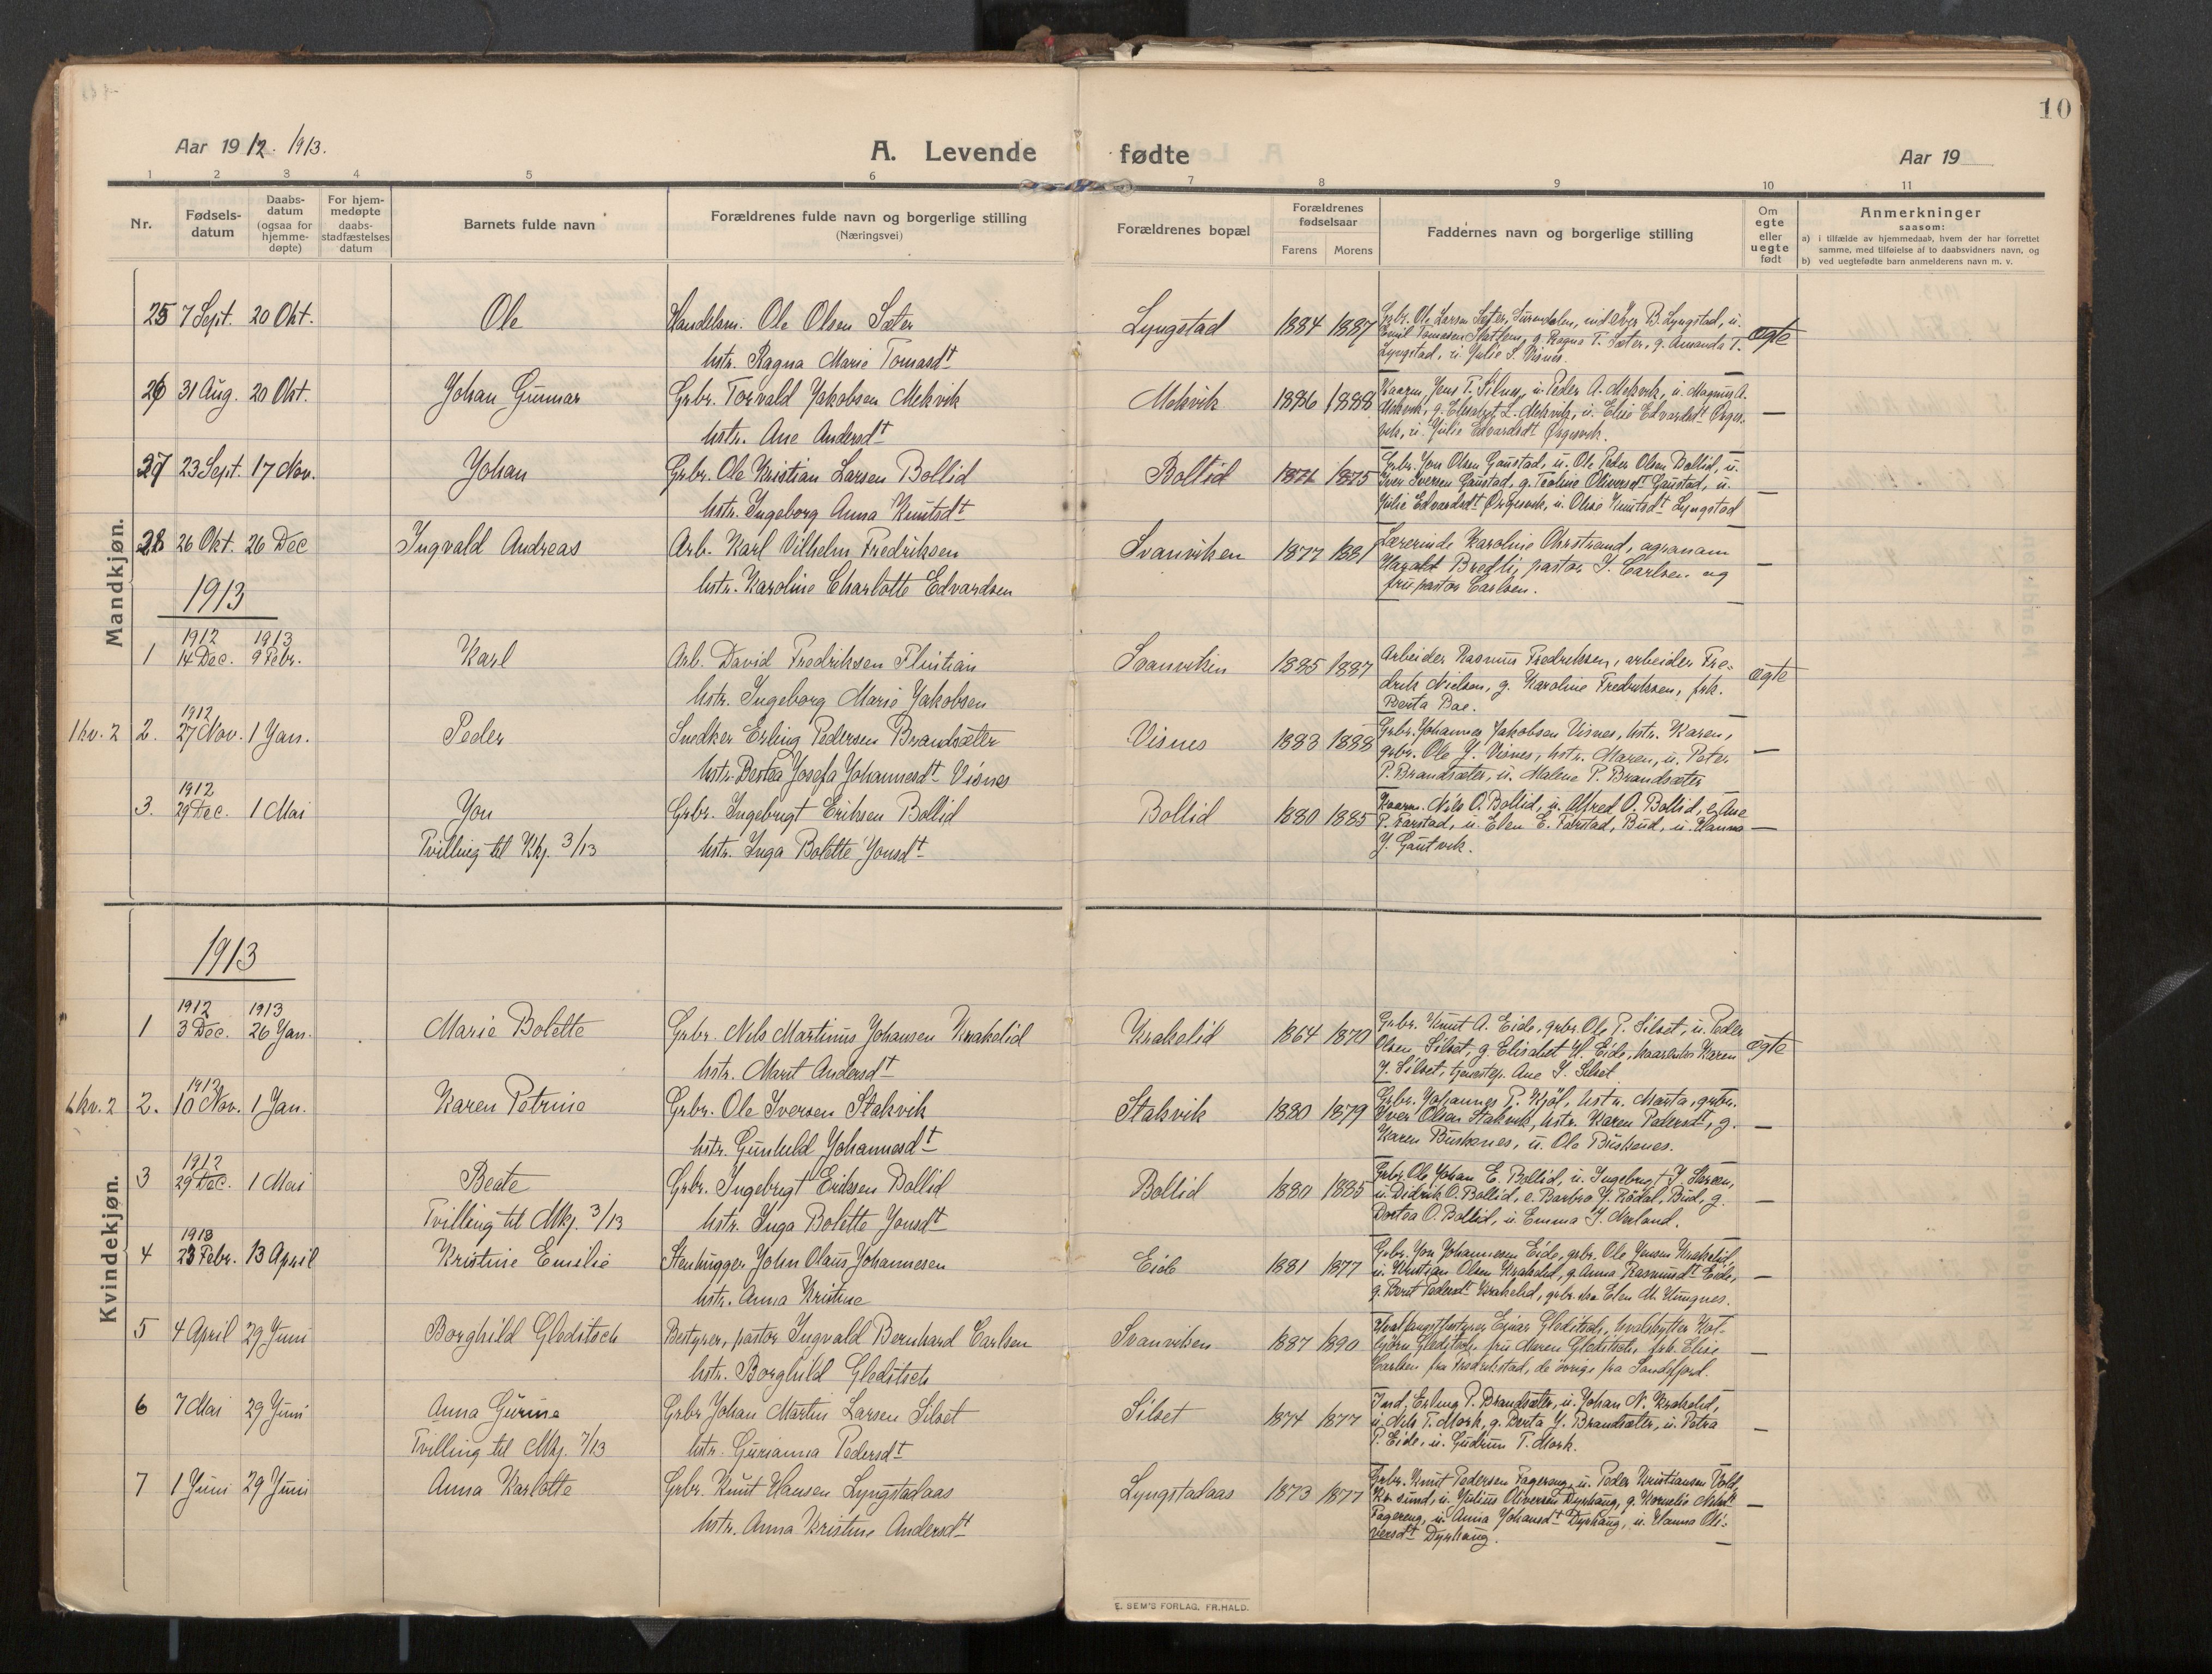 10
Aar 1912. 1913.
A. Levende fødte
Aar 19
1 2 3 4 5 6 7 8 9 10 11
Nr.
Fødsels-
datum
Daabs-
datum
(ogsaa for
hjemme-
døpte)
For hjem-
medøpte
daabs-
stadfæstelses
datum
Barnets fulde navn
Forældrenes fulde navn og borgerlige stilling
(Næringsvei)
Forældrenes bopæl
Forældrenes
fødselsaar
Farens Morens
Faddernes navn og borgerlige stilling
Om
egte
eller
uegte
født
Anmerkninger
saasom:
a) i tilfælde av hjemmedaab, hvem der har forrettet
samme, med tilføielse af to daabsvidners navn, og
b) ved uegtefødte barn anmelderens navn m. v.
Mandkjøn.
25 7 Sept. 20 Okt. Ole Handelsm. Ole Olsen Sæter Lyngstad 1884 1887 Grbr. Ole Larsen Sæter, Surendalen, Iver B. Lyngstad, u. ægte
hstr. Ragna Marie Tomasdt Emil Tomassen g. Ragna T. Sæter, g. Amanda T.
Lyngstad, u. Julie S. Visnes.
26 31 Aug. 20 Okt. Johan Gunnar Grbr. Torvald Jakobsen Mekvik Mekvik 1886 1888 Kaarm. Jens T. Silnes, u. Peder A. Mekvik, u. Magnus A. —
hstr. Ane Andersdt Mekvik, g. Elisabet L. Mekvik, u. Elise Edvardsdt Ørges-
vik, u. Julie Edvardsdt Ørgesvik.
27 23 Sept. 17 Nov. Johan Grbr. Ole Kristian Larsen Bollid Bollid 1875 Grbr. Jon Olsen Gaustad, u. Ole Peder Olsen Bollid, u. —
hstr. Ingeborg Anna Knutsdt Iver Iversen Gaustad, g. Teoline Oliversdt Gaustad, u.
Julie Edvardsdt Ørgesvik, u. Olise Knutsdt Lyngstad
28 26 Okt. 26 Dec Ingvald Andreas Arb. Karl Vilhelm Fredriksen Svanviken 1877 1881 Lærerinde Karoline Ohrstrand, agronom —
hstr. Karoline Charlotte Edvardsen Harald Bredli, pastor I. Carlsen og
fru pastor Carlsen.
1913
1912 1913
1 14 Dec. 9 Febr. Karl Arb. David Fredriksen Flintian Svanviken 1885 1887 Arbeider Rasmus Fredriksen, arbeider Fre- ægte
hstr. Ingeborg Marie Jakobsen drik Nielsen, g. Karoline Fredriksen, frk.
Berta Boe.
1912
1 kv. 2 2. 27 Nov. 1 Jan. Peder Snedker Erling Pedersen Brandsæter Visnes 1883 1888 Grbr. Johannes Jakobsen Visnes, hstr. Karen, —
hstr. Bertea Josefa Johannesdt Visnes grbr. Ole J. Visnes, hstr. Maren, u. Peter
P. Brandsæter, u. Malene P. Brandsæter
1912
3. 29 Dec. 1 Mai Jon Grbr. Ingebrigt Eriksen Bollid Bollid 1880 1885 Kaarm. Nils O. Bollid, u. Alfred O. Bollid, e. Ane —
Tvilling til Kkj. 3/13 hstr. Inga Bolette Jonsdt P. Farstad, u. Elen E. Farstad, Bud, u. Hanna
J. Gautvik.
Kvindekjøn.
1913
1912 1913
1 3 Dec. 26 Jan. Marie Bolette Grbr. Nils Martinus Johansen Krakelid Krakelid 1864 1870 Grbr. Knut A. Eide, grbr. Ole P. Silset, u. Peder ægte
hstr. Marit Andersdt Olsen Silset, g. Elisabet H. Eide, Karen
J. Silset, tjenestep. Ane J. Silset
1912
1 kv. 2 2. 10 Nov. 1 Jan. Karen Petrine Grbr. Ole Iversen Stakvik Stakvik 1880 1879 Grbr. Johannes P. Kjøl, hstr. Marta, grbr. —
hstr. Gunhild Johannesdt Iver Olsen Stakvik, hstr. Karen Pedersdt, g.
Karen Buskenes, u. Ole Buskenes.
1912
3 29 Dec. 1 Mai Beate Grbr. Ingebrigt Eriksen Bollid Bollid 1880 1885 Grbr. Ole Johan E. Bollid, u. Ingebrigt J. —
Tvilling til Mkj. 3/13 hstr. Inga Bolette Jonsdt u. Didrik O. Bollid, e. Barbro J. Rödal, Bud, g.
Dortea O. Bollid, u. Emma J. Nerland.
1913
4 23 Febr. 13 April Kristine Emilie Stenhugger John Olaus Johannesen Eide 1881 1877 Grbr. Jon Johannesen Eide, grbr. Ole Jensen Krakelid, —
hstr. Anna Kristine u. Kristian Olsen Krakelid, g. Anna Rasmusdt Eide,
g. Berit Pedersdt Krakelid, Elen M. Ungnes.
5 4 April 29 Juni Borghild Gleditsch Bestyrer, pastor Ingvald Bernhard Carlsen Svanviken 1887 1890 Hvalfangstbestyrer Einar Gleditsch, hvalskytter Kol- —
hstr. Borghild Gleditsch bjørn Gleditsch, fru Maren Gleditsch, frk. Elise
Carlsen fra Fredrikstad, de övrige fra Sandefjord.
6 7 Mai 29 Juni Anna Gurine Grbr. Johan Martin Larsen Silset Silset 1874 1877 Ind. Erling P. Brandsæter, u. Johan N. Krakelid, —
Tvilling til Mkj. 7/13 hstr. Gurianna Pedersdt u. Nils T. Mork, g. Berta J. Brandsæter, u. Petra
P. Eide, u. Gudrun T. Mork.
7 1 Juni 29 Juni Anna Karlotte Grbr. Knut Hansen Lyngstadaas Lyngstadaas 1873 1877 Grbr. Knut Pedersen Fagereng, u. Peder Kristiansen Vold, —
hstr. Anna Kristine Andersdt Kr.sund, u. Julius Oliversen Dyrhaug, g. Kornelie Nilsdt
Fagereng, u. Anna Johansdt Dyrhaug, u. Hanna Oli-
versdt Dyrhaug.
E. SEM'S FORLAG, FR.HALD.